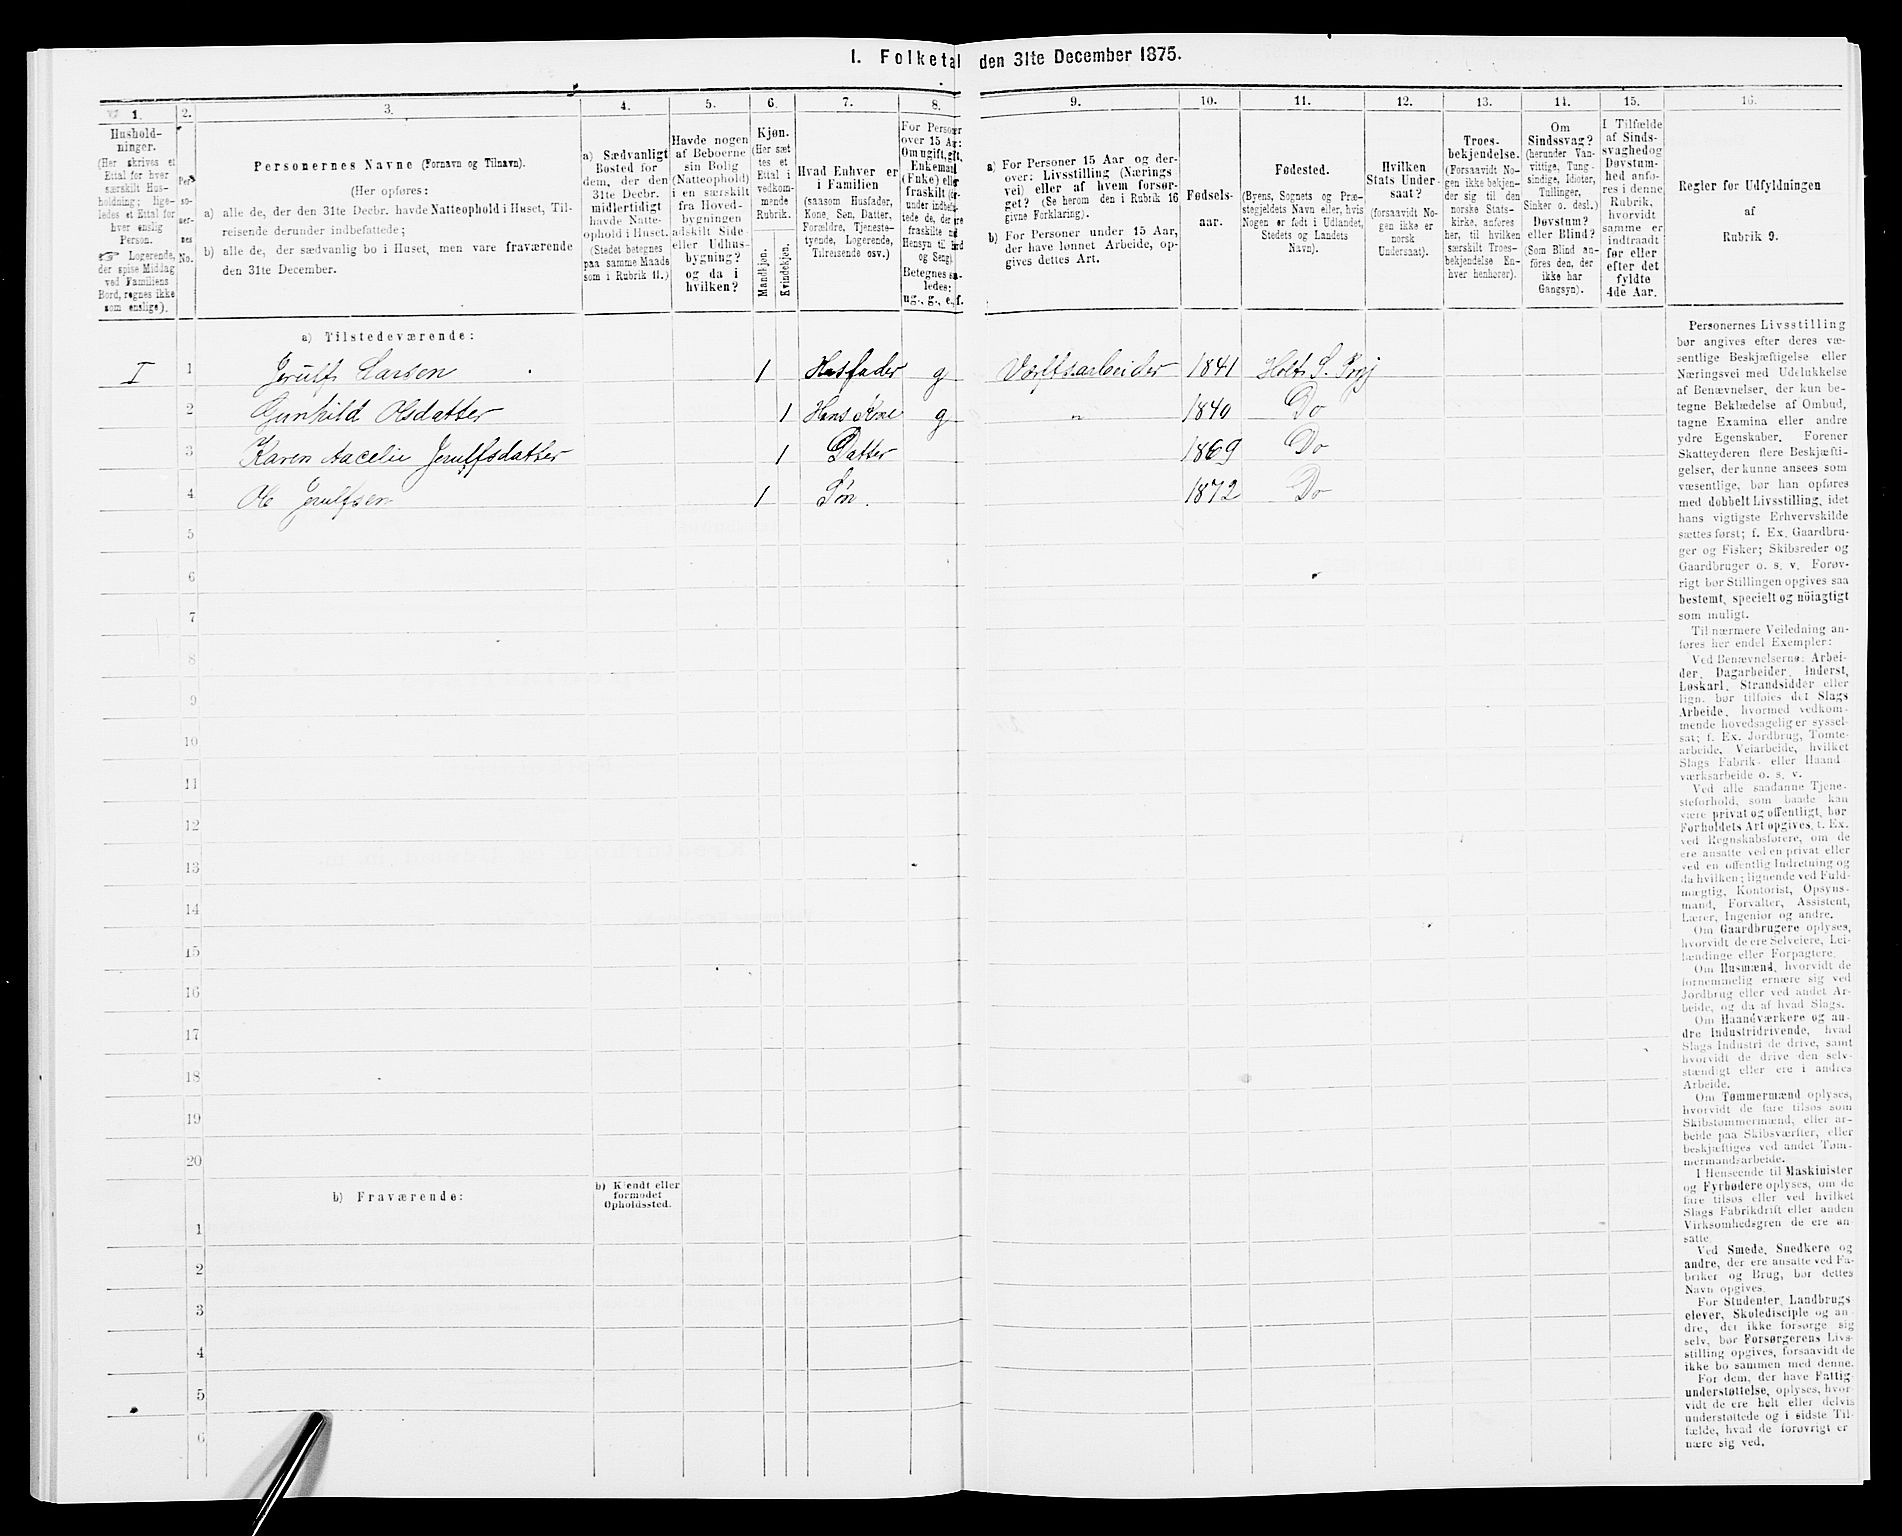 I. Folketal den 31te December 1875.
1. 2. 3. 4. 5. 6. 7. 8. 9. 10. 11. 12. 13. 14. 15. 16.
Hushold-
ninger.
(Her skrives et
Ettal for hver
særskilt Hus-
holdning; lige-
ledes et Ettal for
hver enslig
Person.
☞ Logerende,
der spise Middag
ved Familiens
Bord, regnes ikke
som enslige).
Per-
so-
ner-
nes
No.
Personernes Navne (Fornavn og Tilnavn).
(Her opføres:
a) alle de, der den 31te Decbr. havde Natteophold i Huset, Til-
reisende derunder indbefattede;
b) alle de, der sædvanlig bo i Huset, men vare fraværende
den 31te December.
a) Sædvanligt
Bosted for
dem, der den
31te Decbr.
midlertidigt
havde Natte-
ophold i Huset.
(Stedet betegnes
paa samme Maade
som i Rubrik 11.)
Havde nogen
af Beboerne
sin Bolig
(Natteophold)
i en særskilt
fra Hoved-
bygningen
adskilt Side-
eller Udhus-
bygning?
og da i
hvilken?
Kjøn.
(Her sæt
tes et
Ettal i
vedkom-
mende
Rubrik.
Mandkjøn.
Kvindekjøn.
Hvad Enhver er
i Familien
(saasom Husfader,
Kone, Søn, Datter,
Forældre, Tjeneste-
tyende, Logerende,
Tilreisende osv.)
For Personer
over 15 Aar:
Om ugift, gift,
Enkemand
(Enke) eller
fraskilt

Betegnes saa-
ledes:
ug., g., e., f.
a) For Personer 15 Aar og der-
over: Livsstilling (Nærings
vei) eller af hvem forsør-
get? (Se herom den i Rubrik 16
givne Forklaring).
b) For Personer under 15 Aar,
der have lønnet Arbeide, op-
gives dettes Art.
Fødsels-
aar.
Fødested.
(Byens, Sognets og Præ-
stegjeldets Navn eller, hvis
Nogen er født i Udlandet,
Stedets og Landets
Navn).
Hvilken
Stats Under-
saat?
(forsaavidt No-
gen ikke er
norsk
Undersaat).
Troes-
bekjendelse.
(Forsaavidt No-
gen ikke bekjen-
der sig til den
norske Stats-
kirke, anføres
her, til hvilken
særskilt Troes-
bekjendelse En-
hver henhører).
Om
Sindssvag?
(herunder Van-
vittige, Tung-
sindige, Idioter,
Tullinger,
Sinker o. desl.)
Døvstum?
eller Blind?
(Som Blind an-
føres den, der
ikke har
Gangsyn).
I Tilfælde
af Sinds-
svaghed og
Døvstum-
hed anfø-
res i denne
Rubrik,
hvorvidt
samme er
indtraadt
før eller
efter det
fyldte
4de Aar.
Regler for Udfyldningen
af
Rubrik 9.
a) Tilstedeværende:
I 1 Jerulf Larsen 1 Husfader g Værftsarbeider 1841 Holts S.
2 Gunhild Olsdatter 1 Hans Kone g " 1840 Do
3 Karen Aacelie Jerulfsdatter 1 Datter 1869 Do
4 Ole Jerulfsen 1 Søn. 1872 Do
5
6
7
8
9
10
11
12
13
14
15
16
17
18
19
20
b) Fraværende: b) Kjendt eller
formodet
Opholdssted.
1
2
3
4
5
6
Personernes Livsstilling
bør angives efter deres væ-
sentlige Beskjæftigelse eller
Næringsvei med Udelukkelse
af Benævnelser, der kun be-
tegne Beklædelse af Ombud,
tagne Examina eller andre
ydre Egenskaber. Forener
Skatteyderen flere Beskjæfti-
gelser, der kunne ansees som
væsentlige, bør han opføres
med dobbelt Livsstilling, idet
hans vigtigste Erhvervskilde
sættes først; f. Ex. Gaardbru-
ger og Fisker; Skibsreder og
Gaardbruger o. s. v. Forøv-
rigt bør Stillingen opgives saa
bestemt, specielt og nöiagtigt
som muligt.
Til nærmere Veiledning an-
føres her endel Exempler:
Ved Benævnelserne: Arbei-
der, Dagarbeider, Inderst,
Løskarl, Strandsidder eller
lign. bør tilføies det Slags
Arbeide, hvormed vedkom-
mende hovedsagelig er syssel-
sat; f. Ex. Jordbrug, Tomte-
arbeide, Veiarbeide, hvilket
Slags Fabrik- eller Haand-
værksarbeide o. s. v.
Ved alle saadanne Tjene-
steforhold, som baade kan
være privat og offentligt, bør
Forholdets Art opgives, f. Ex.
ved Regnskabsførere, om de
ere ansatte ved en privat eller
ved en offentlig Indretning og
da hvilken; lignende ved Fuld-
mægtig, Kontorist, Opsyns-
mand, Forvalter, Assistent,
Lærer, Ingeniør og andre.
Om Gaardbrugere oplyses,
hvorvidt de ere Selveiere, Lei-
lændinge eller Forpagtere.
Om Husmænd, hvorvidt de
fornemmelig ernære sig ved
Jordbrug eller ved andet Ar-
beide, og da af hvad Slags.
Om Haandværkere og an-
dre Industridrivende, hvad
Slags Industri de drive, samt
hvorvidt de drive den selv-
stændigt eller ere i andres
Arbeide.
Om Tømmermænd oplyses,
hvorvidt de fare tilsøs som
Skibstømmermænd, eller ar-
beide paa Skibsværfter, eller
beskjæftiges ved andet Tøm-
mermandsarbeide.
I Henseende til Maskinister
og Fyrbødere oplyses, om de
fare tilsøs eller ved hvilket
Slags Fabrikdrift eller anden
Virksomhedsgren de ere an-
satte.
Ved Smede, Snedkere og
andre, der ere ansatte ved Fa-
briker og Brug, bør dettes
Navn opgives.
For Studenter, Landbrugs-
elever, Skoledisciple og an-
dre, der ikke forsørge sig
selv, bør Forsørgerens Livs-
stilling opgives, forsaavidt de
ikke bo sammen med denne.
For dem, der have Fattig-
understøttelse, oplyses, hvor-
vidt de ere helt eller delvis
understøttede og i sidste Til-
fælde, hvad de forøvrigt er-
nære sig ved.